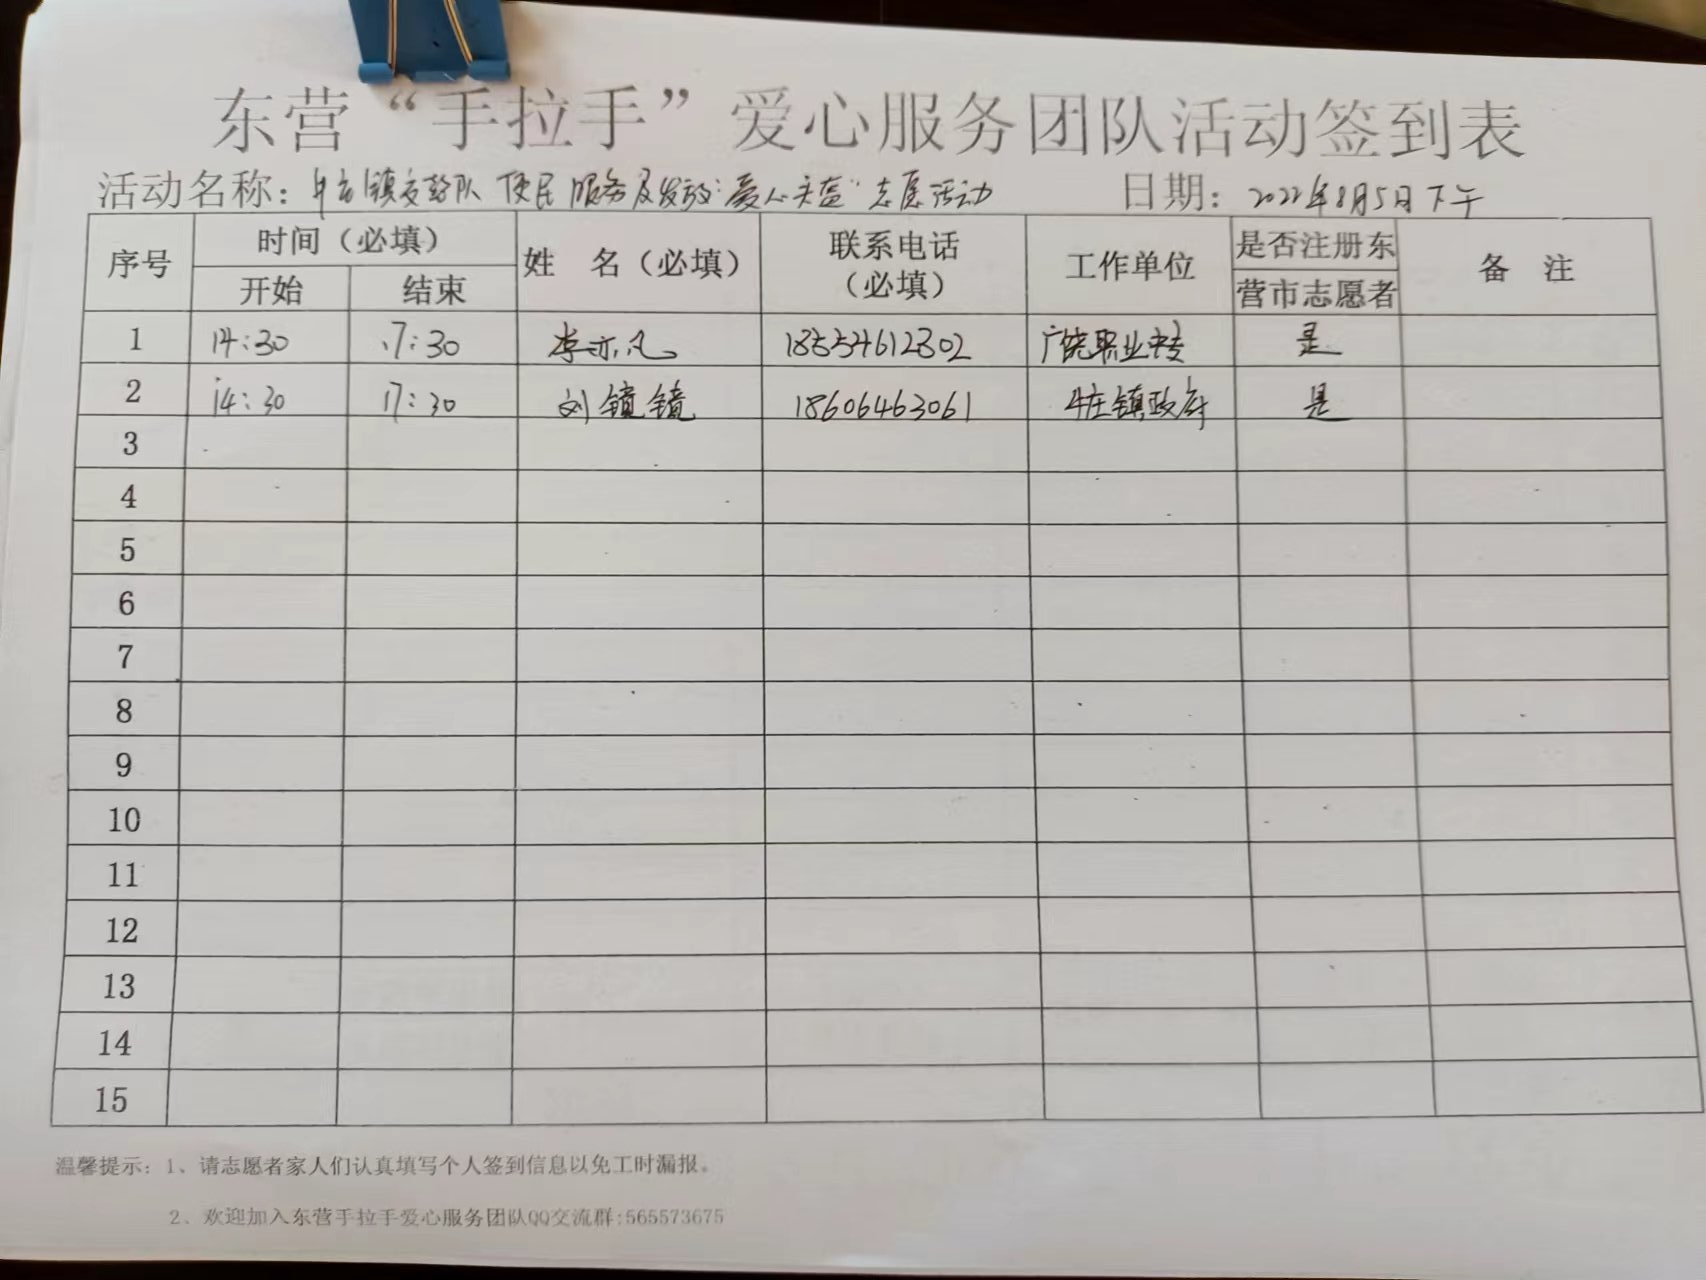 东营“手拉手”爱心服务团队活动签到表
活动名称：牛庄镇交警队 便民服务及发放“爱心头盔”志愿活动 日期：2022年8月5日下午
序号 时间（必填） 姓 名（必填） 联系电话（必填） 工作单位 是否注册东营市志愿者 备 注
开始 结束
1 14:30 17:30 李亦凡 18554612302 广饶职业中专 是
2 14:30 17:30 刘镜镜 18606463061 牛庄镇政府 是
3
4
5
6
7
8
9
10
11
12
13
14
15
温馨提示：1、请志愿者家人们认真填写个人签到信息以免工时漏报。
2、欢迎加入东营手拉手爱心服务团队QQ交流群:565573675